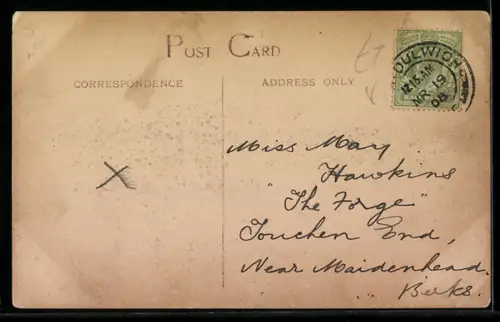 POST CARD
CORRESPONDENCE
ADDRESS ONLY
DULWICH
12.15 AM
MR 19
06
X
Miss May
Hawkins
"The Forge"
Touchen End,
Near Maidenhead.
Berks.